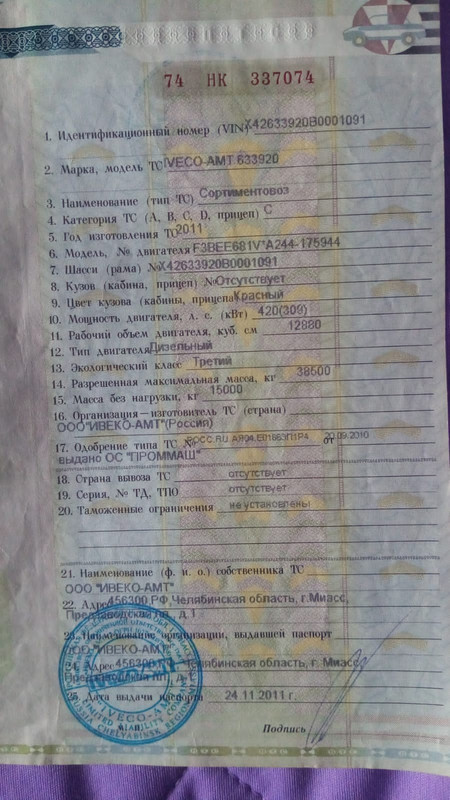 74 НК 337074
1. Идентификационный номер (VIN) X42633920B0001091
2. Марка, модель ТС IVECO-AMT 633920
3. Наименование (тип ТС) Сортиментовоз
4. Категория ТС (А, В, С, D, прицеп) С
5. Год изготовления ТС 2011
6. Модель, № двигателя F3BEE681V*A244-175944
7. Шасси (рама) № X42633920B0001091
8. Кузов (кабина, прицеп) № Отсутствует
9. Цвет кузова (кабины, прицепа) Красный
10. Мощность двигателя, л. с. (кВт) 420(309)
11. Рабочий объем двигателя, куб. см 12880
12. Тип двигателя Дизельный
13. Экологический класс Третий
14. Разрешенная максимальная масса, кг 38500
15. Масса без нагрузки, кг 15000
16. Организация-изготовитель ТС (страна)
ООО"ИВЕКО-АМТ"(Россия)
17. Одобрение типа ТС № от 20.09.2010
выдано ОС "ПРОММАШ"
18. Страна вывоза ТС отсутствует
19. Серия, № ТД, ТПО отсутствует
20. Таможенные ограничения не установлены
21. Наименование (ф. и. о.) собственника ТС
ООО "ИВЕКО-АМТ"
22. Адрес 456300 РФ, Челябинская область, г.Миасс,
Предзаводская пл., д.1
23. Наименование организации, выдавшей паспорт
ООО "ИВЕКО-АМТ"
24. Адрес 456300 Челябинская область, г.Миасс
Предзаводская пл., д.
25. Дата выдачи паспорта 24.11.2011 г.
Подпись